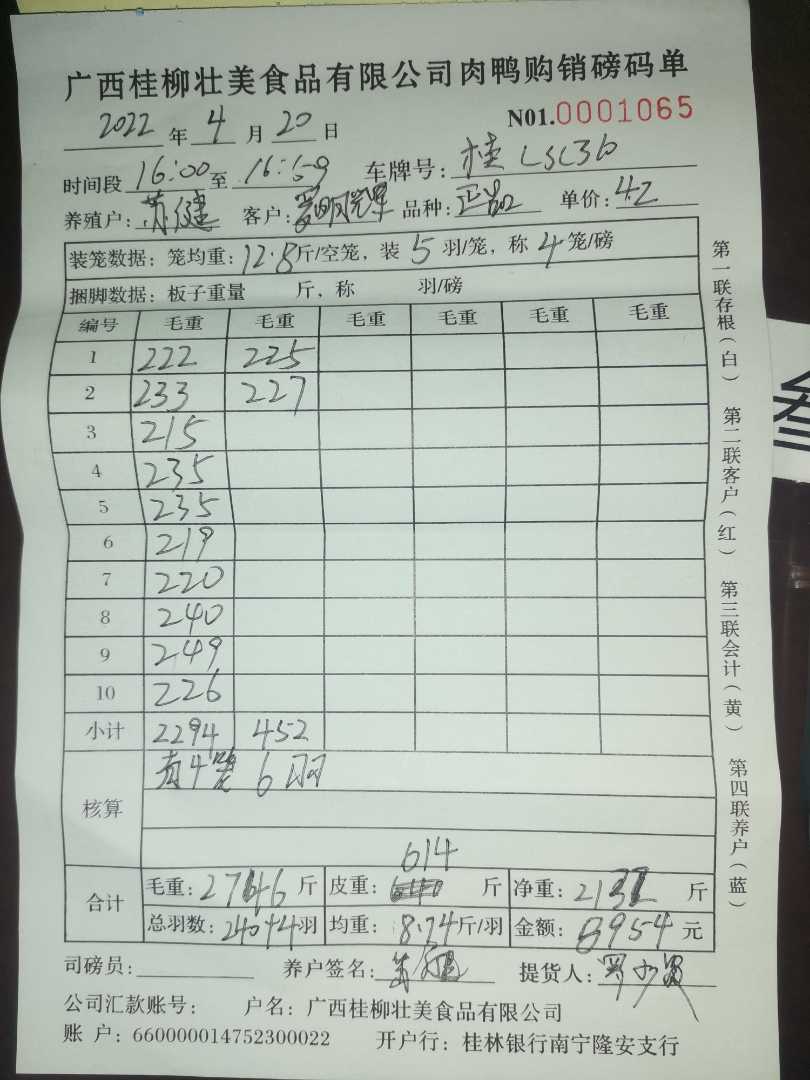 广西桂柳壮美食品有限公司肉鸭购销磅码单
2022年4月20日 N01.0001065
时间段 16:00至16:59 车牌号:桂L5C36
养殖户: 健 客户: 品种:正品 单价:4.2
装笼数据:笼均重:12.8斤/空笼,装5羽/笼,称4笼/磅
捆脚数据:板子重量 斤,称 羽/磅
编号 毛重 毛重 毛重 毛重 毛重 毛重
1 222 225
2 233 227
3 215
4 235
5 235
6 219
7 220
8 240
9 249
10 226
小计 2294 452
核算 有4笼6羽
614
合计 毛重:2746斤 皮重: 斤 净重:2132斤
总羽数:240+4羽 均重:8.74斤/羽 金额:8954元
司磅员: 养户签名: 提货人:
公司汇款账号: 户名:广西桂柳壮美食品有限公司
账 户:660000014752300022 开户行:桂林银行南宁隆安支行
第一联存根(白) 第二联客户(红) 第三联会计(黄) 第四联养户(蓝)